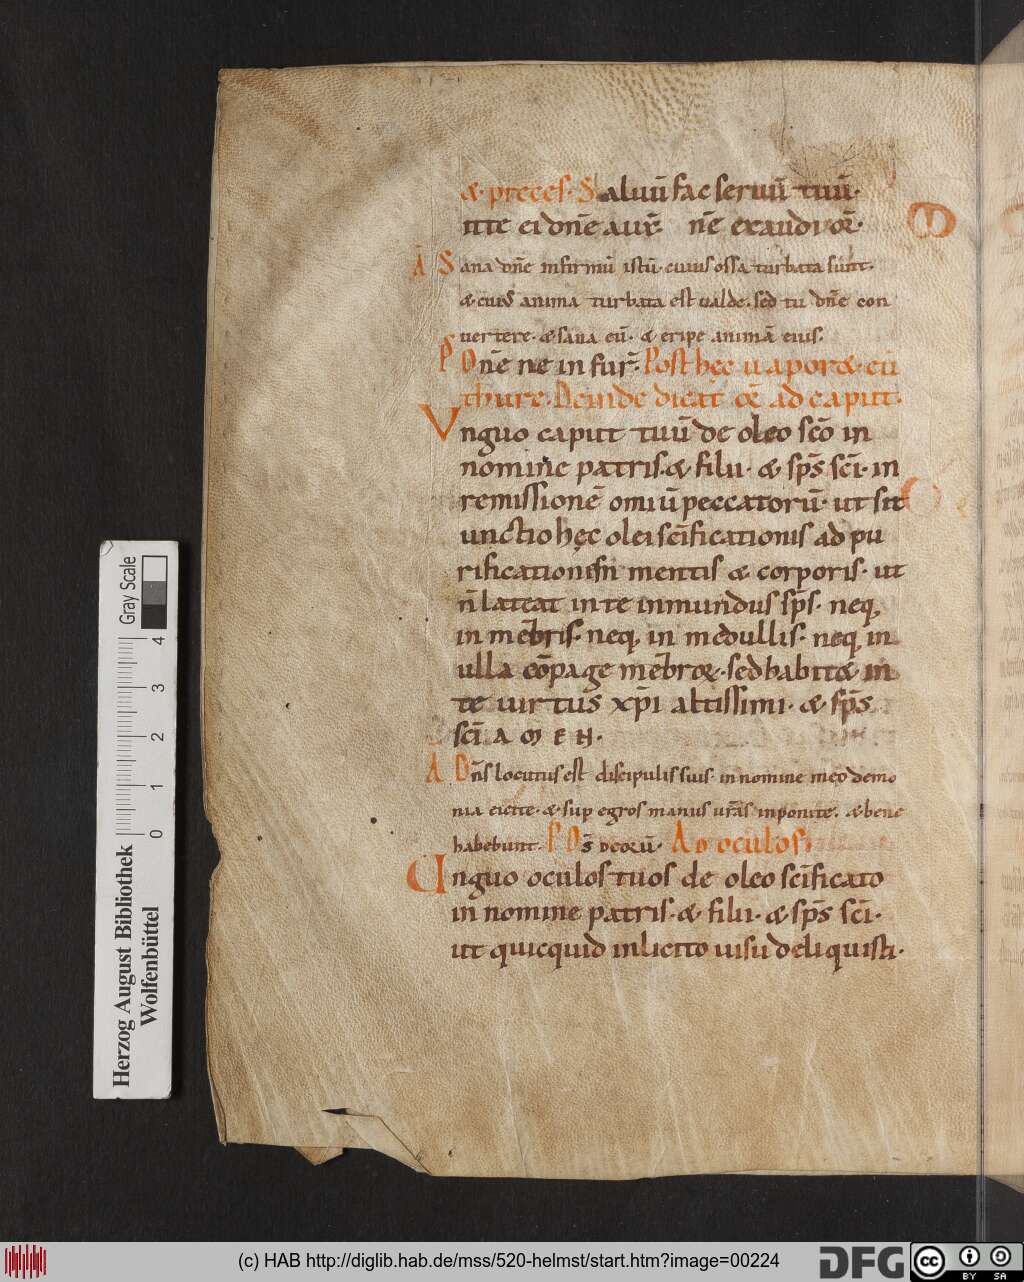 &. preces. Saluū fac seruū tuū.
tte ei dnē aux̄. nē exaudi or̄.
Ā Sana dnē infirmū istū. cuius ossa turbata sunt.
& cuiꝰ anima turbata est ualde. sed tu dnē con
uertere. & sana eū. & eripe animā eius.
P Dnē ne in fur̄. Post hęc uapor& eū
thure. Deinde dicat ad caput.
Vnguo caput tuū de oleo scō in
nomine patris. & filii. & sps̄ scī. in
remissionē omiū peccatorū. ut sit
unctio hęc olei scīficationis ad pu
rificationem mentis & corporis. ut
n̄ lateat in te inmundus sps̄. neq,
in mēbris. neq, in medullis. neq, in
ulla cōpage mēbroꝝ. sed habit& in
te uirtus xp̄i altissimi. & sps̄
scī. AMEN.
A Dn̄s locutus est discipulis suis. in nomine meo demo
nia eicite. & sup egros manus urās inponite. & bene
habebunt. P Ds̄ deorū. Ad oculos.
Unguo oculos tuos de oleo scīficato
in nomine patris. & filii. & sps̄ scī.
ut quicquid inlicito uisu deliquisti.
Gray Scale
0 1 2 3 4
Herzog August Bibliothek
Wolfenbüttel
(c) HAB http://diglib.hab.de/mss/520-helmst/start.htm?image=00224
DFG
cc BY SA